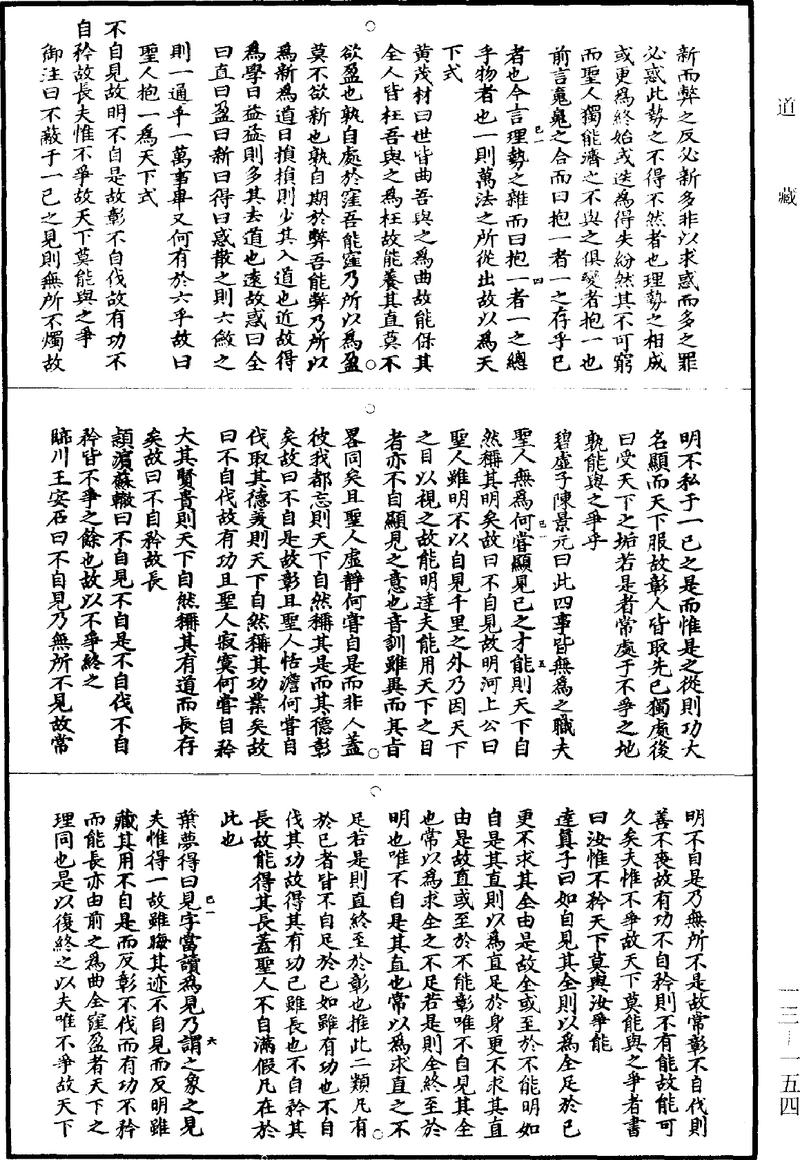 道藏
新而弊之反必新多非以求惑而多之罪
必惑此勢之不得不然者也理勢之相成
或更為終始或迭為得失紛然其不可窮
而聖人獨能濟之不與之俱變者抱一也
前言䰟魄之合而曰抱一者一之存乎已
者也今言理勢之雜而曰抱一者一之總
乎物者也一則萬法之所從出故以為天
下式
黃茂材曰世皆曲吾與之為曲故能保其
全人皆枉吾與之為枉故能養其直莫不
欲盈也孰自處於窪吾能窪乃所以為盈
莫不欲新也孰自期於弊吾能弊乃所以
為新為道日損損則少其入道也近故得
為學日益益則多其去道也遠故惑曰全
曰直曰盈曰新曰得曰惑散之則六斂之
則一通乎一萬事畢又何有於六乎故曰
聖人抱一為天下式
不自見故明不自是故彰不自伐故有功不
自矜故長夫惟不爭故天下莫能與之爭
御注曰不蔽于一己之見則無所不燭故
明不私于一己之是而惟是之從則功大
名顯而天下服故彰人皆取先己獨處後
曰受天下之垢若是者常處于不爭之地
孰能與之爭乎
碧虛子陳景元曰此四事皆無為之職夫
聖人無為何嘗顯見己之才能則天下自
然稱其明矣故曰不自見故明河上公曰
聖人雖明不以自見千里之外乃因天下
之目以視之故能明達夫能用天下之目
者亦不自顯見之意也音訓雖異而其旨
畧同矣且聖人虛靜何嘗自是而非人蓋
彼我都忘則天下自然稱其是而其德彰
矣故曰不自是故彰且聖人恬澹何嘗自
伐取其德美則天下自然稱其功業矣故
曰不自伐故有功且聖人寂寞何嘗自矜
大其賢貴則天下自然稱其有道而長存
矣故曰不自矜故長
潁濵蘇轍曰不自見不自是不自伐不自
矜皆不爭之餘也故以不爭終之
臨川王安石曰不自見乃無所不見故常
明不自是乃無所不是故常彰不自伐則
善不喪故有功不自矜則不有能故能可
久矣夫惟不爭故天下莫能與之爭者書
曰汝惟不矜天下莫與汝爭能
達真子曰如自見其全則以為全足於己
更不求其全由是故全或至於不能明如
自是其直則以為直足於身更不求其直
由是故直或至於不能彰唯不自見其全
也常以為求全之不足若是則全終至於
明也唯不自是其直也常以為求直之不
足若是則直終至於彰也推此二類凡有
於己者皆不自足於己如雖有功也不自
伐其功故得其有功己雖長也不自矜其
長故能得其長蓋聖人不自滿假凡在於
此也
葉夢得曰見字當讀為見乃謂之象之見
夫惟得一故雖晦其迹不自見而反明雖
藏其用不自是而反彰不伐而有功不矜
而能長亦由前之為曲全窪盈者天下之
理同也是以復終之以夫唯不爭故天下
己一 四
己一 五
己一 六
一三—一五四